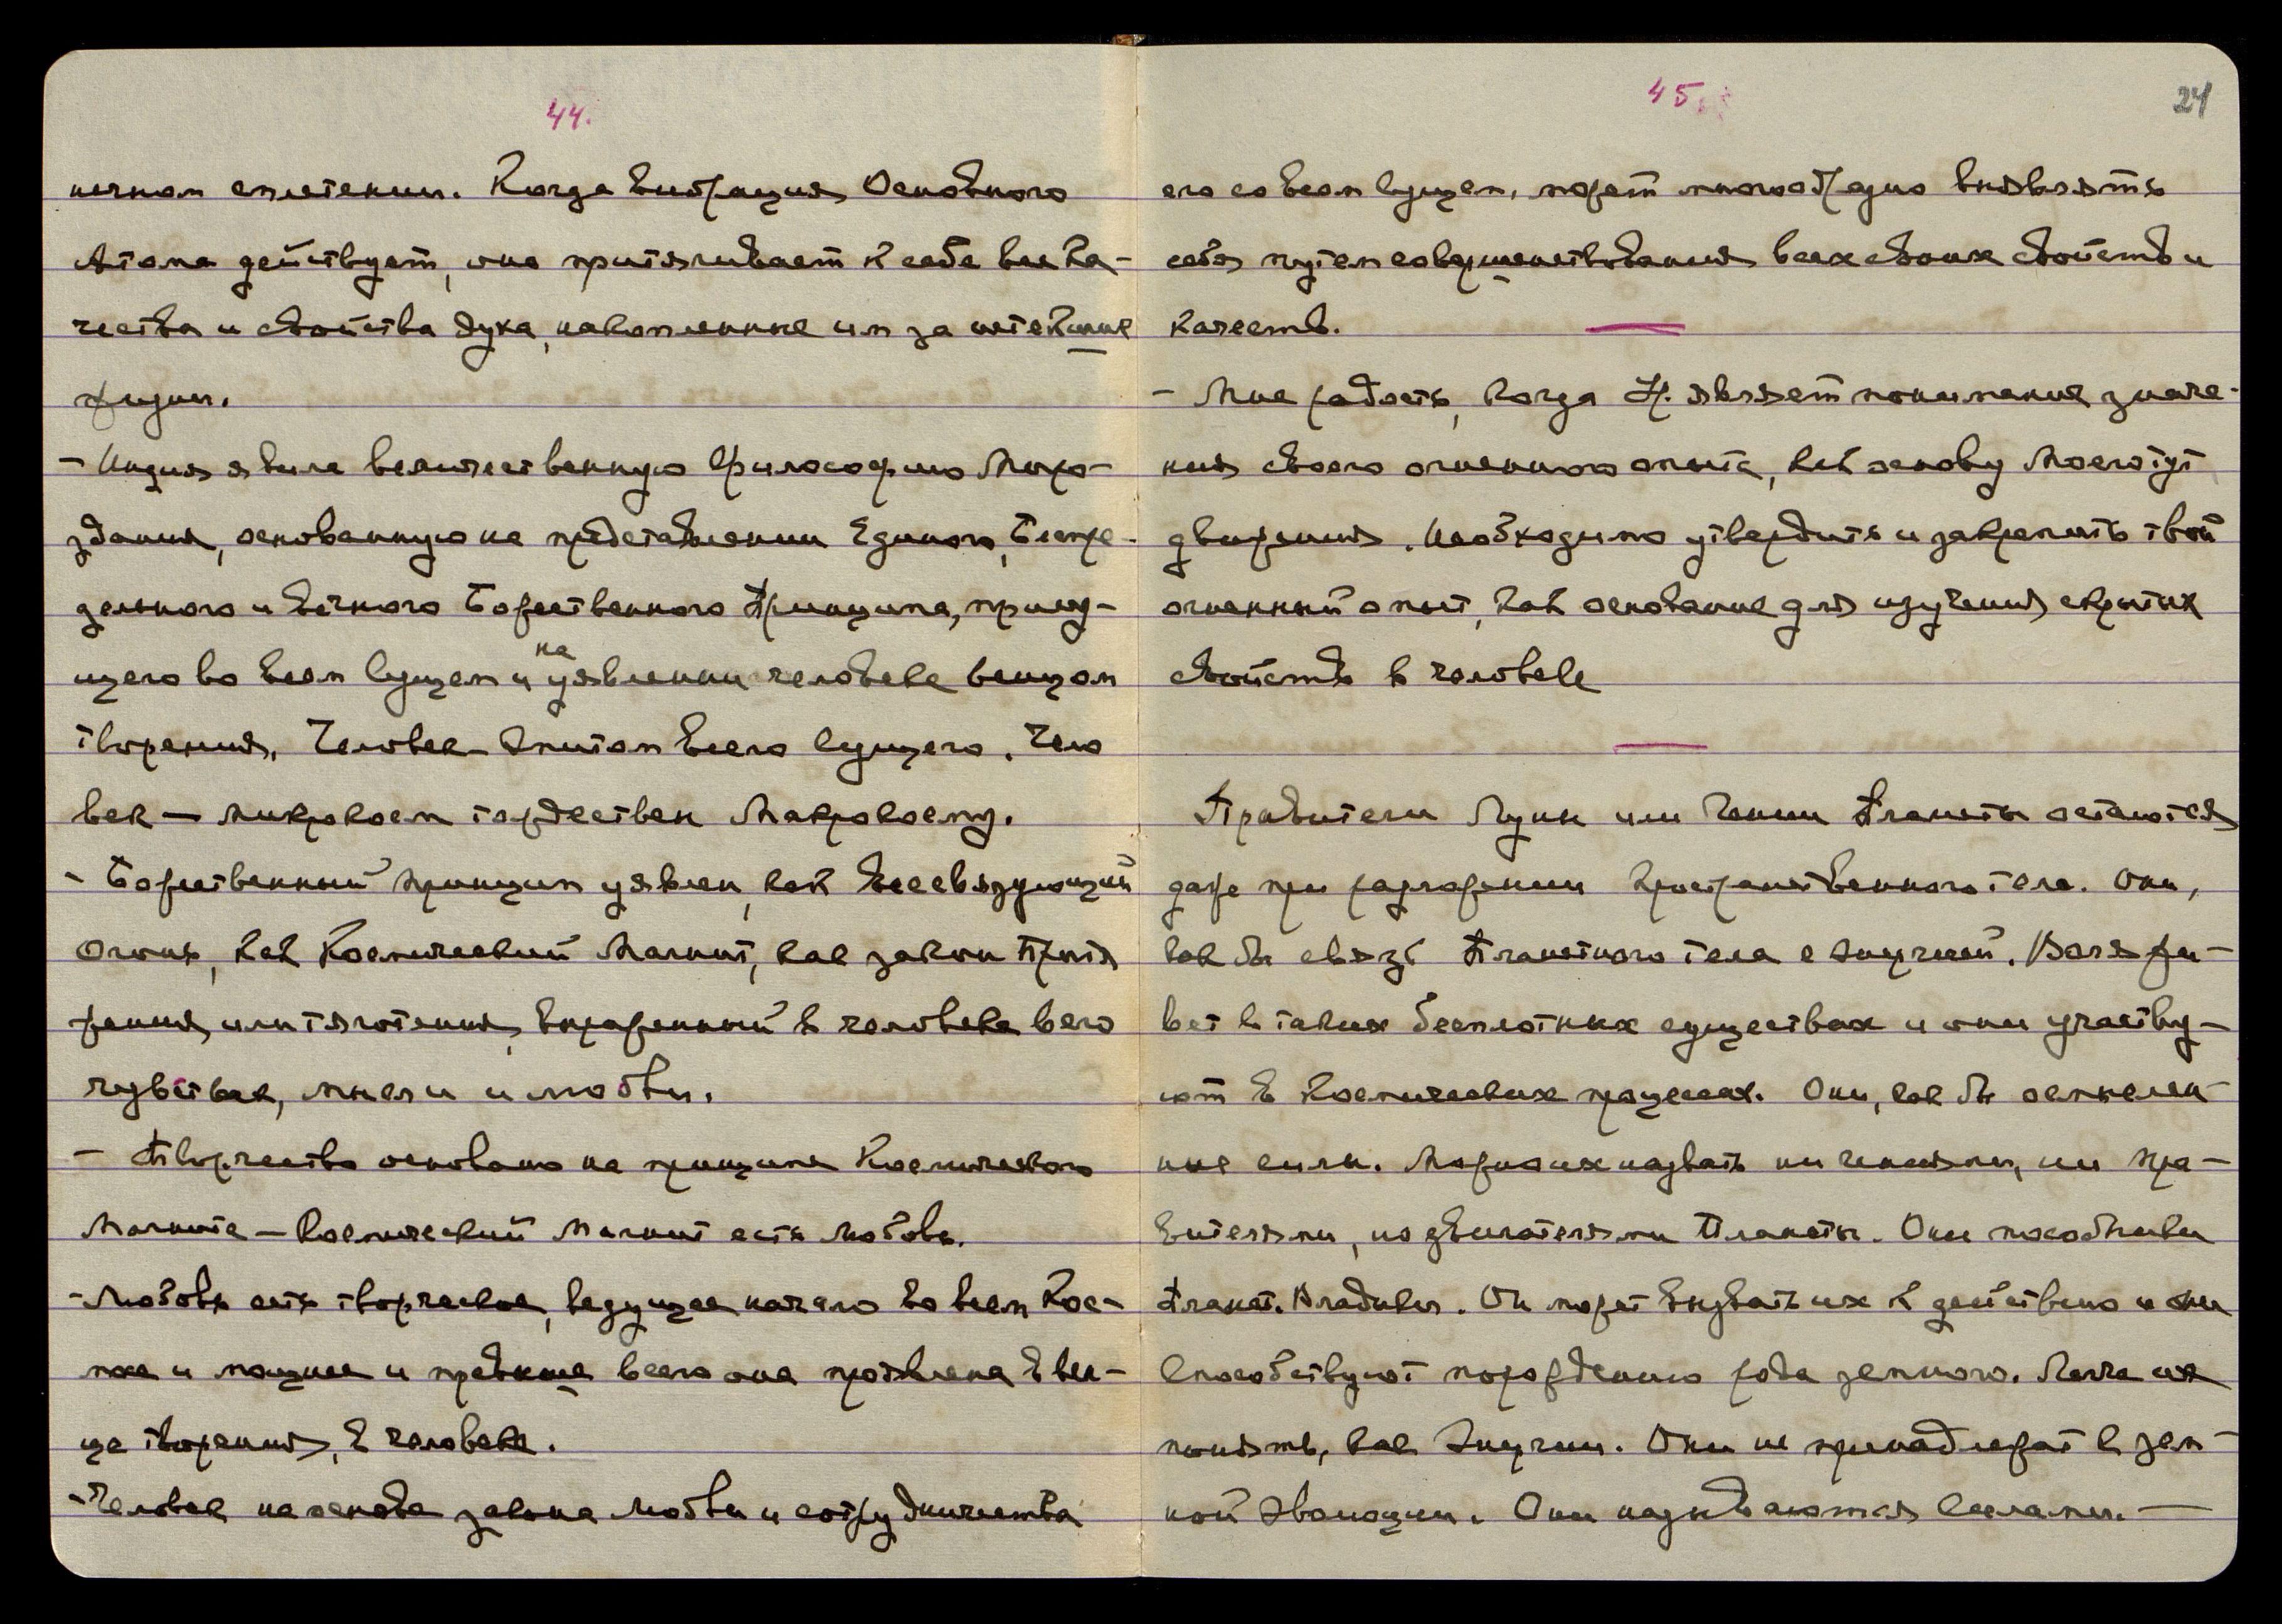 44.
нечном сплетении. Когда вибрация Основного
Атома действует, она притягивает к себе все ка-
чества и свойства духа, накопленные им за истекшие
жизни.
- Индия явила величественную философию Миро-
здания, основанную на представлении Единого, Беспре-
дельного и Вечного Божественного Принципа, прису-
щего во всем Сущем и на уявлении человека венцом
творения. Человек - Эпитом всего Сущего. Чело
век — микрокосм тождествен Макрокосму.
- Божественный принцип уявлен, как Всесвязующий
огонь, как Космический Магнит, как закон Притя
жения, или тяготения, выраженный в человеке в его
чувствах, мысли и любви.
- Творчество основано на принципе Космического
Магнита — Космический Магнит есть Любовь.
- Любовь есть творческое, ведущее начало во всем Кос-
мосе и мощнее и превыше всего она проявлена в вен-
це творения, в человеке.
- Человек на основе закона Любви и сотрудничества
45.
24
его со всем Сущем, может многообразно выявлять
себя путем совершенствования всех своих свойств и
качеств.
- Мне радость, когда Ур. являет понимание значе-
ния своего огненного опыта, как основу Моего тут
движения. Необходимо утвердить и закрепить твой
огненный опыт, как основание для изучения скрытых
свойств в человеке
Правители Луны или Гении Планеты остаются
даже при разложении пространственного тела. Они,
как бы связь Планетного тела с энергией. Воля жи-
вет в таких бесплотных существах и они участву-
ют в Космических процессах. Они, как бы осмыслен-
ные силы. Можно их назвать ни гениями, ни пра-
вителями, но двигателями Планеты. Они пособники
Планет. Владыки. Он может вызвать их к действию и они
способствуют порождению рода земного. Легче их
понять, как Энергии. Они не принадлежат к зем-
ной эволюции. Они называются Силами. —